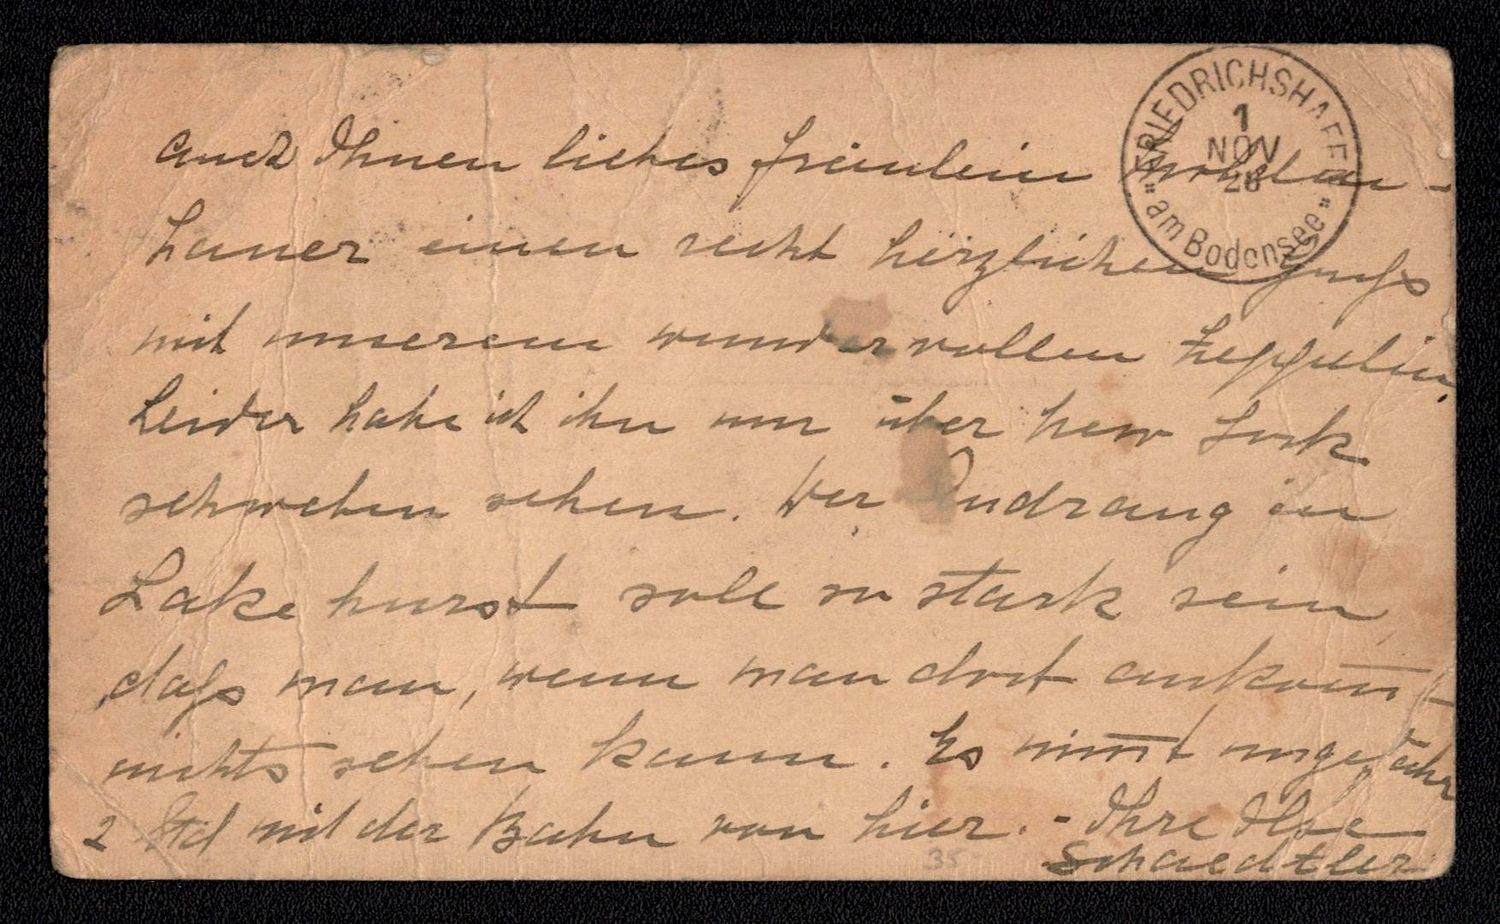 FRIEDRICHSHAFEN
1
NOV
28
" am Bodensee "
auch Ihnen liebes Fräulein
hauer einen recht herzlichen Gruß
mit unserem wundervollen Zeppelin.
Leider habe ich ihn nur über New York
schweben sehen. Der Andrang in
Lakehurst soll so stark sein,
daß man, wenn man dort ankom̅t
nichts sehen kann. Es nim̅t ungefähr
2 Std mit der Bahn von hier. - Ihre Ilse
Schaedtler
35